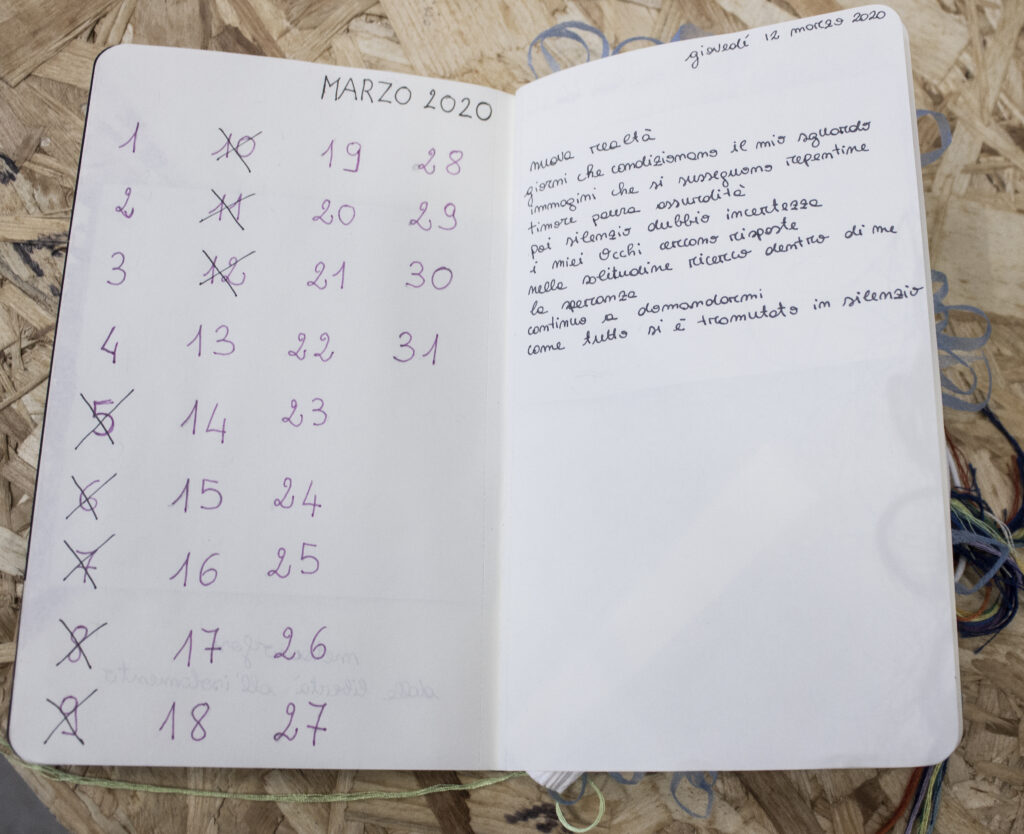 MARZO 2020
1 10 19 28
2 11 20 29
3 12 21 30
4 13 22 31
5 14 23
6 15 24
7 16 25
8 17 26
9 18 27
dalla libertà all'isolamento
giovedí 12 marzo 2020
nuova realtà
giorni che condizionano il mio sguardo
immagini che si susseguono repentine
timore paura assurdità
poi silenzio dubbio incertezza
i miei occhi cercano risposte
nella solitudine ricerco dentro di me
la speranza
continuo a domandarmi
come tutto si è tramutato in silenzio